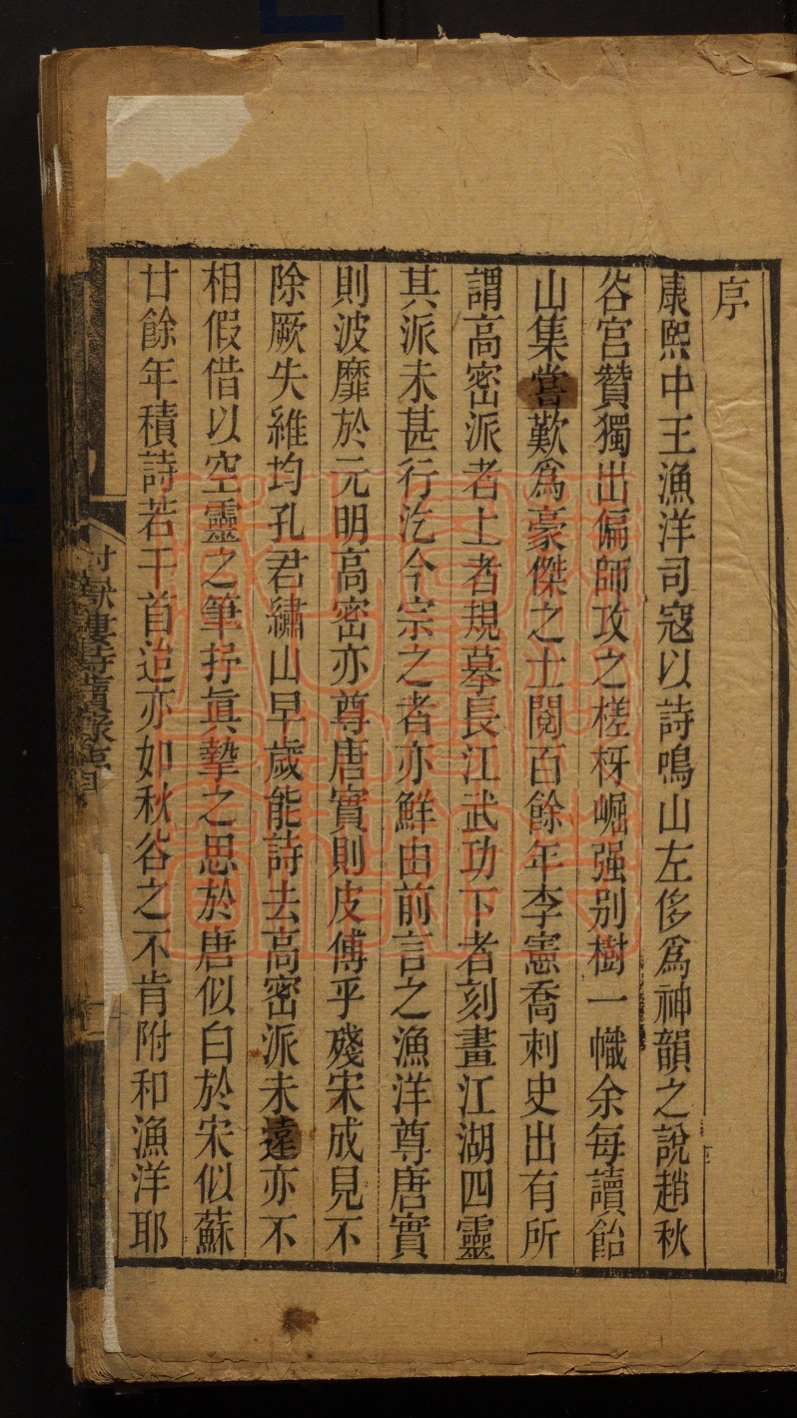 序
康熙中王漁洋司寇以詩鳴山左侈爲神韻之說趙秋
谷宮贊獨出偏師攻之槎枒崛强别樹一幟余每讀飴
山集嘗歎爲豪傑之士閱百餘年李憲喬刺史出有所
謂高密派者上者規摹長江武功下者刻畫江湖四靈
其派未甚行汔今宗之者亦鮮由前言之漁洋尊唐實
則波靡於元明高密亦尊唐實則皮傅乎殘宋成見不
除厥失維均孔君繡山早歲能詩去高密派未遠亦不
相假借以空靈之筆抒眞摯之思於唐似白於宋似蘇
廿餘年積詩若干首迨亦如秋谷之不肯附和漁洋耶
詩